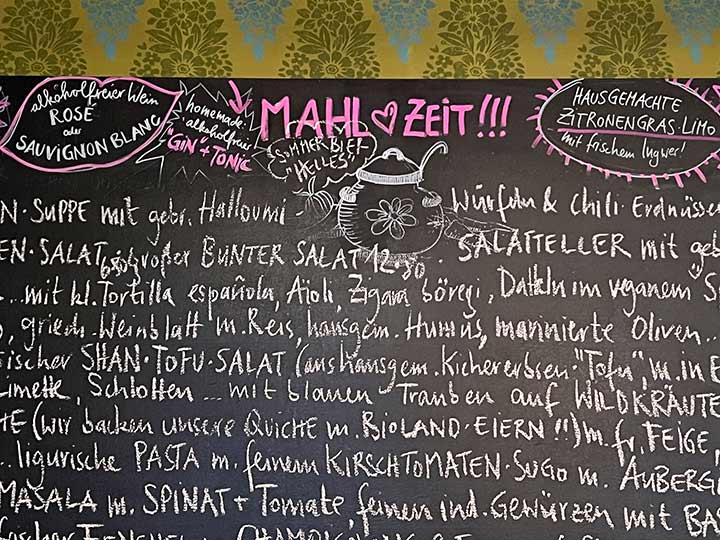 alkoholfreier Wein
ROSÉ
oder
SAUVIGNON BLANC
homemade
alkoholfreier
"GIN" + TONIC
MAHL ZEIT!!!
SOMMER BIER
"HELLES"
HAUSGEMACHTE
ZITRONENGRAS·LIMO
mit frischem Ingwer!
N·SUPPE mit gebr. Halloumi - Würfeln & Chili·Erdnüsse
EN·SALAT GROßER BUNTER SALAT 12.50 . SALATTELLER mit geb
... mit kl. Tortilla española, Aioli, Zigara böregi, Datteln im veganem "S
, griech. Weinblatt m. Reis, hausgem. Humus, marinierte Oliven...
ischer SHAN·TOFU·SALAT (aus hausgem. Kichererbsen·"Tofu", m. in E
Limette, Schlotten ... mit blauen Trauben auf WILDKRÄUTE
TE (wir backen unsere QUICHE m. BIOLAND·EIERN!!) m. fr. FEIGE,
.. ligurische PASTA m. feinem KIRSCHTOMATEN·SUGO m. AUBERGI
MASALA m. SPINAT + Tomate, feinen ind. Gewürzen mit BAS